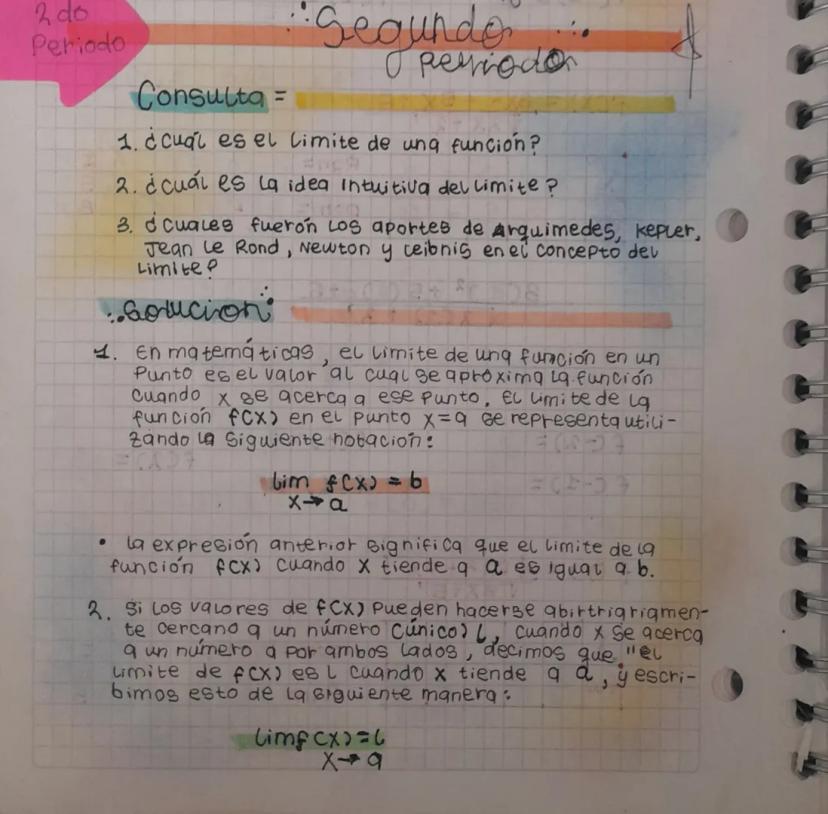 2do
Periodo
Segundo
periodo
Consulta =
1. ¿cuál es el limite de una función?
2. ¿cuál es la idea intuitiva del limite?
3. ¿cuales fuerón los aportes de Arquimedes, kepler,
Jean le Rond, Newton y leibnis en el concepto del
limite?
Solucion:
1. En matemáticas, el limite de una función en un
punto es el valor al cual se apróxima la función
cuando x se acerca a ese punto. El limite de la
función f(x) en el punto x=a se representa utili-
zando la siguiente notacion:
lim f(x) = b
x→a
• la expresión anterior significa que el limite de la
función f(x) cuando x tiende a a es igual a b.
2. Si los valores de f(x) pueden hacerse abirtriariamen-
te cercano a un número (único) L, cuando x se acerca
a un número a por ambos lados, decimos que "el
limite de f(x) es l cuando x tiende a a, y escri-
bimos esto de la siguiente manera:
limf(x)=l
x→a